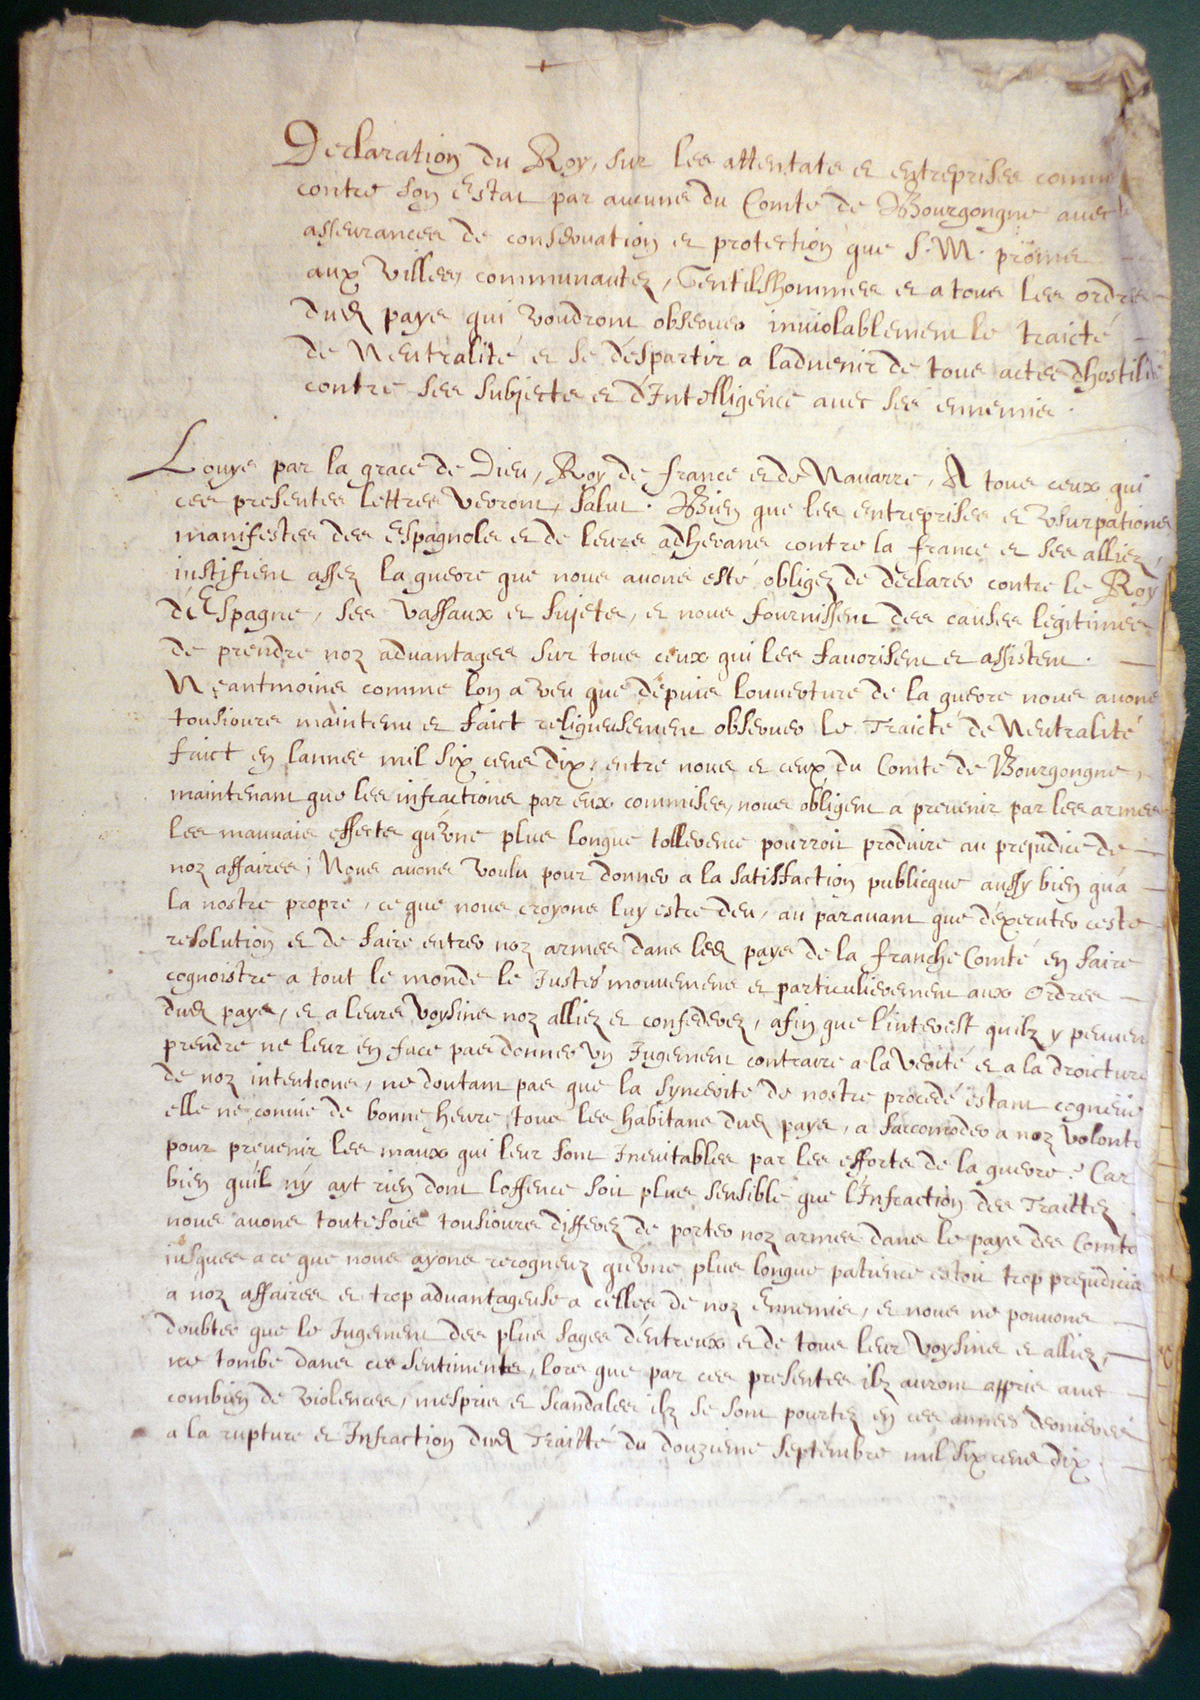 Declaration du Roy, sur les attentats et entreprises commis
contre son Estat par aucuns du Comté de Bourgongne avec
asseurances de conservation et protection que S. M. promet
aux Villes, communautez, Gentilshommes et a tous les ordres
dud pays qui voudront observer inviolablement le traicté
de Neutralité et se despartir a ladvenir de tous actes dhostilité
contre ses subjects et d'Intelligence avec ses ennemis.
Louys par la grace de Dieu, Roy de france et de Navarre, A tous ceux qui
ces presentes lettres verront, salut. Bien que les entreprises et Vsurpations
manifestes des Espagnols et de leurs adherans contre la france et ses alliez,
iustifient assez la guerre que nous avons esté obligez de declarer contre le Roy
d'Espagne, ses vassaux et sujets, et nous fournissent des causes legitimes
de prendre noz advantages sur tous ceux qui les favorisent et assistent.
Neantmoins comme lon a veu que depuis louverture de la guerre nous avons
tousiours maintenu et faict religieusement observer le Traicté de Neutralité
faict en lannee mil six cens dix, entre nous et ceux du Comté de Bourgongne,
maintenant que les infractions par eux commises, nous obligent a prevenir par les armes
les mauvais effects qu'vne plus longue tollerence pourroit produire au prejudice de
noz affaires; Nous avons voulu pour donner a la satisfaction publicque aussy bien qu'a
la nostre propre, ce que nous croyons luy estre deu, au paravant que d'executer ceste
resolution et de faire entrer noz armes dans led pays de la franche Comté en faire
cognoistre a tout le monde le Juste mouvement et particulierement aux Ordres
dud pays, et a leurs voysins noz alliez et confederez, afin que l'interest quilz y peuvent
prendre ne leur en face pas donner vn Jugement contraire a la verité et a la droicture
de noz intentions, ne doutant pas que la syncerité de nostre procedé estant cogneue
elle ne convie de bonne heure tous les habitans dud pays, a saccomoder a noz volontez
pour prevenir les maux qui leur sont Inevitables par les efforts de la guerre. Car
bien quil ny ayt rien dont loffence soit plus sensible que l'Infraction des Traittez
nous avons toutesfois tousiours differez de porter noz armes dans le pays des Comtois
iusques a ce que nous ayons recogneuz qu'vne plus longue patience estoit trop prejudiciable
a noz affaires et trop advantageuse a celles de noz Ennemis, et nous ne pouvons
doubter que le Jugement des plus sages d'entreux et de tous leur voysins et alliez,
ne tombe dans ces sentiments, lors que par ces presentes ilz auront appris avec
combien de violences, mespris et scandales ilz se sont pourtez en ces annees dernieres
a la rupture et Infraction dud Traitté du douzieme septembre mil six cens dix.